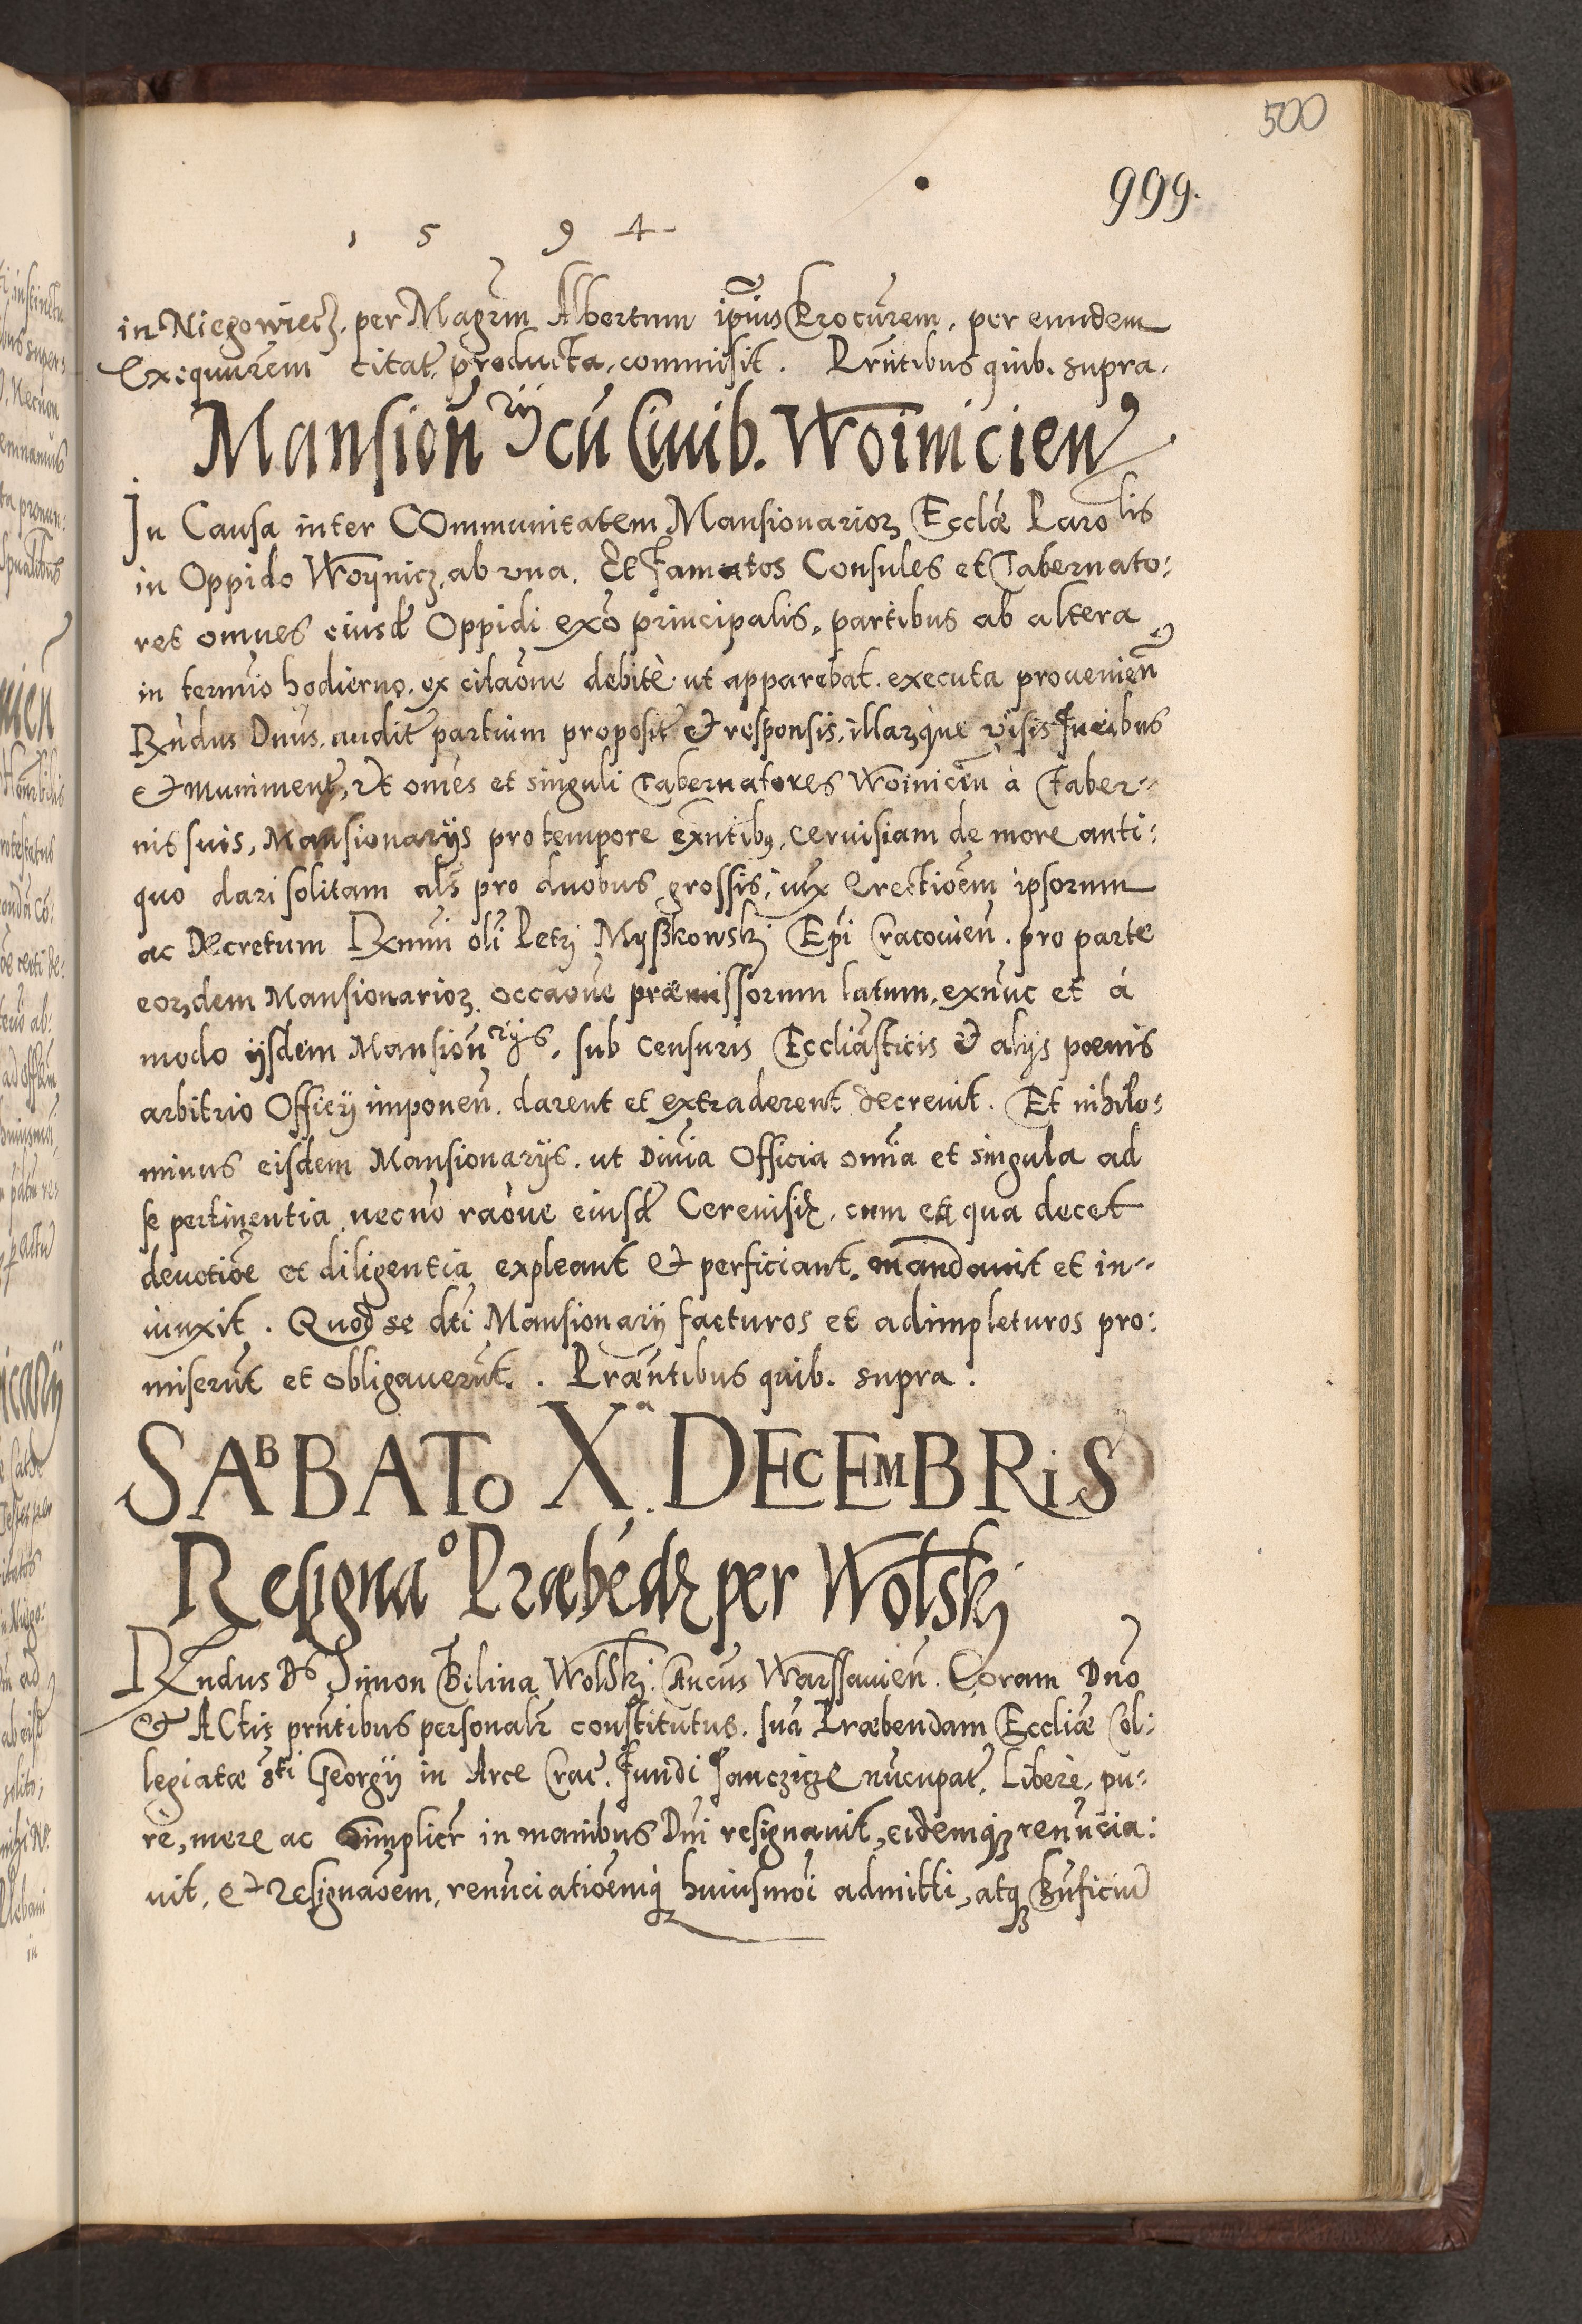 500
999.
1 5 9 4
in Niegowiecz. per Magrm Albertum ipius Procurem. per eundem
Exequurem citat. producta, commisit. Prntibus quib. supra.
Mansion̄ rij cū Civib. Woinicien
In Causa inter COmmunitatem Mansionarioꝝ Ecclæ Parolis
in Oppido Woÿnicz, ab vna. Et Famatos Consules et Tabernato:
res omnes eiusd Oppidi exō principalis, partibus ab altera
in termio hodierno. ex citaōne debitè ut apparebat. executa provenien̄
Rn̄dus Dnūs. audit partium proposit & responsis, illarꝝque visis Iuribus
& muniment, Ut om̄es et singuli Tabernatores Woiniciēn à Taber=
nis suis, Mansionarÿs pro tempore exn̄tibꝫ, cervisiam de more anti:
quo dari solitam als pro duobus grossis, iux Erectiōem ipsorum
ac Decretum Rxmi oli Petri Mÿßkowskj Epi Cracovien̄. pro parte
eorꝝdem Mansionarioꝝ occaōne præmissorum latum, exnūc et à
modo ÿsdem Mansion̄rÿs, sub censuris Eccliasticis & alÿs pœnis
arbitrio Officÿ imponen̄. darent et extraderent decrevit. Et nihilo:
minus eisdem Mansionarÿs. ut Divīa Officia omnia et singula ad
se pertinentia, necnō raōne eiusd Cerevisiæ, cum ea qua decet
devotiōe et diligentia expleant & perficiant, mandavit et in=
iunxit. Quod se dti Mansionarÿ facturos et adimpleturos pro:
miserūt et obligaverūt. Præn̄tibus quib. supra.
SABBATO X.ª DECEMBRiS
Resignaº Præbēdæ per Wolskj
RXndus Ds Simon Bilina Wolskj. Cancus Warssavien̄. Coram Dno
& ACtis prn̄tibus personalr constitutus. suā Præbendam Eccliæ Col:
legiatæ Sti Georgÿ in Arce Crac̄. Fundi Janczicze nūcupat. Liberè, pu=
re, mere ac Simplicr in manibus Dni resignavit, eidemqꝫ renūcia:
vit, & Resignaōem, renūciatiōemqꝫ huiusmōi admitti, atqꝫ Bn̄ficiū